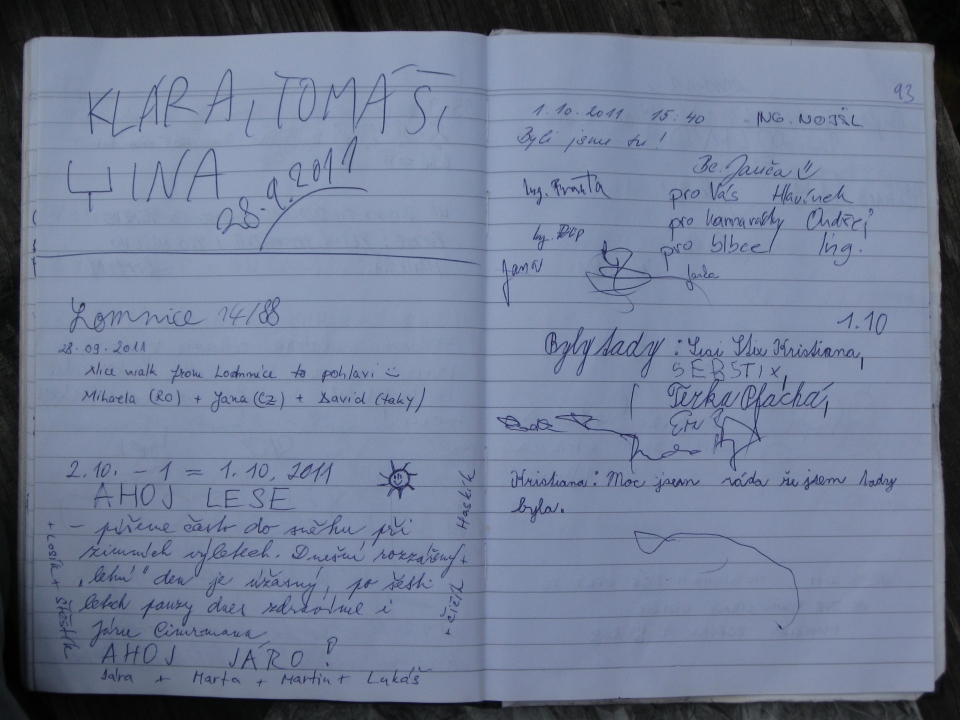 KLÁRA, TOMÁŠ,
INA
28.9.2011
Lomnice 14/88
28.09.2011
Nice walk from Lomnice to pohlavi
Mihaela (RO) + Jana (CZ) + David (taky)
2.10. - 1 = 1.10. 2011
AHOJ LESE
- píšeme často do sněhu při
zimních výletech. Dnešní rozzářený
"letní" den je úžasný, po šesti
letech pauzy dnes zdravíme i
Járu Cimrmana
AHOJ JÁRO!
Sára + Marta + Martin + Lukáš
+ čičík + Haskík
93
1.10.2011 15:40 ING.
Byli jsme tu!
Bc. Janča
Ing. Franta pro Vás Hlavínek
pro kamarádky Ondřej
Ing. pro blbce Ing.
Jana
1.10
Byly tady: Kristiana,
Terka
Kristiana: Moc jsem ráda že jsem tady
byla.